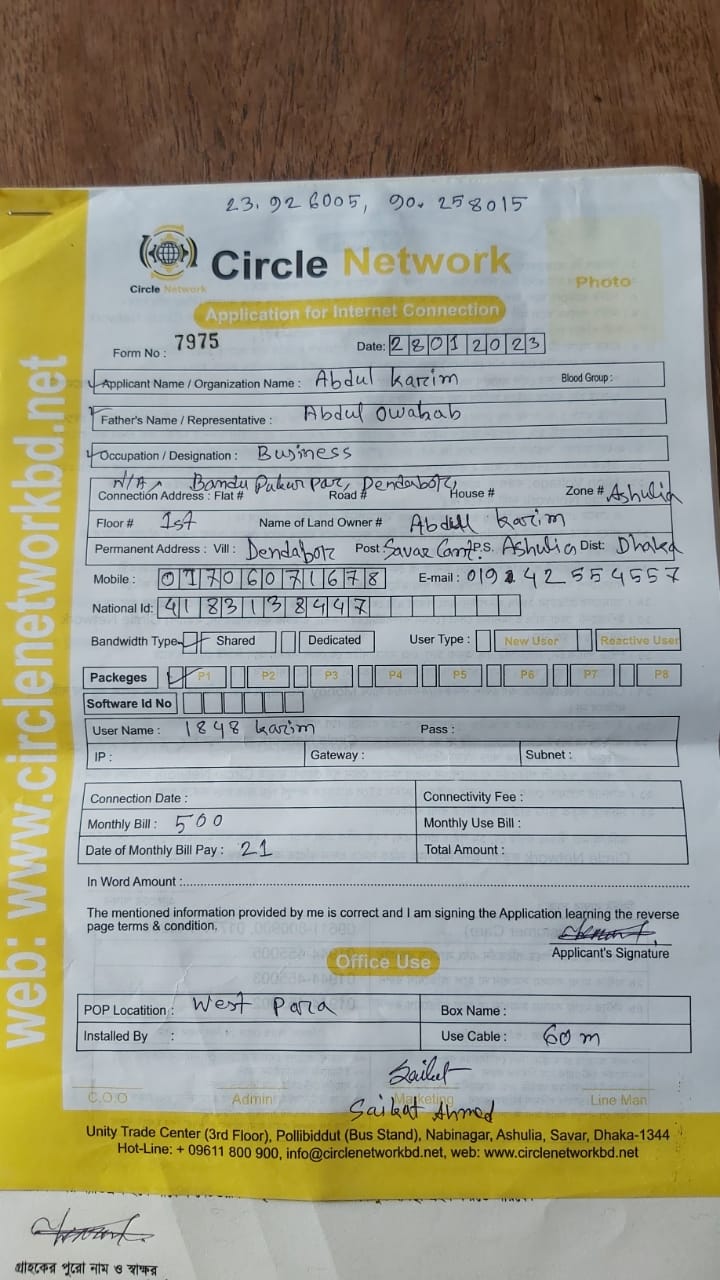 23.926005, 90.258015
Circle Network
Circle Network
Photo
Application for Internet Connection
Form No : 7975 Date: 28012023
Applicant Name / Organization Name : Abdul karim Blood Group :
Father's Name / Representative : Abdul Owahab
Occupation / Designation : Business
N/A Bandu Pukur par, Dendabor,
Connection Address : Flat # Road # House # Zone # Ashulia
Floor # 1st Name of Land Owner # Abdul karim
Permanent Address : Vill : Dendabor Post : Savar Cant P.S. Ashulia Dist: Dhaka
Mobile : 01706071678 E-mail : 01942554557
National Id: 4183138447
Bandwidth Type Shared Dedicated User Type : New User Reactive User
Packeges P1 P2 P3 P4 P5 P6 P7 P8
Software Id No
User Name : 1848 karim Pass :
IP : Gateway : Subnet :
Connection Date : Connectivity Fee :
Monthly Bill : 500 Monthly Use Bill :
Date of Monthly Bill Pay : 21 Total Amount :
In Word Amount :
The mentioned information provided by me is correct and I am signing the Application learning the reverse
page terms & condition.
Applicant's Signature
Office Use
POP Locatition : West Para Box Name :
Installed By : Use Cable : 60 m
Saikat
C.O.O Admin Marketing Line Man
Saikat Ahmed
Unity Trade Center (3rd Floor), Pollibiddut (Bus Stand), Nabinagar, Ashulia, Savar, Dhaka-1344
Hot-Line: + 09611 800 900, info@circlenetworkbd.net, web: www.circlenetworkbd.net
web: www.circlenetworkbd.net
গ্রাহকের পুরো নাম ও স্বাক্ষর